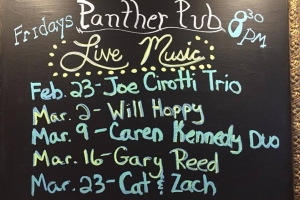 Fridays Panther Pub 8 30 PM
Live Music
Feb. 23-Joe Cirotti Trio
Mar. 2-Will Hoppy
Mar. 9-Caren Kennedy Duo
Mar. 16-Gary Reed
Mar. 23-Cat & Zach